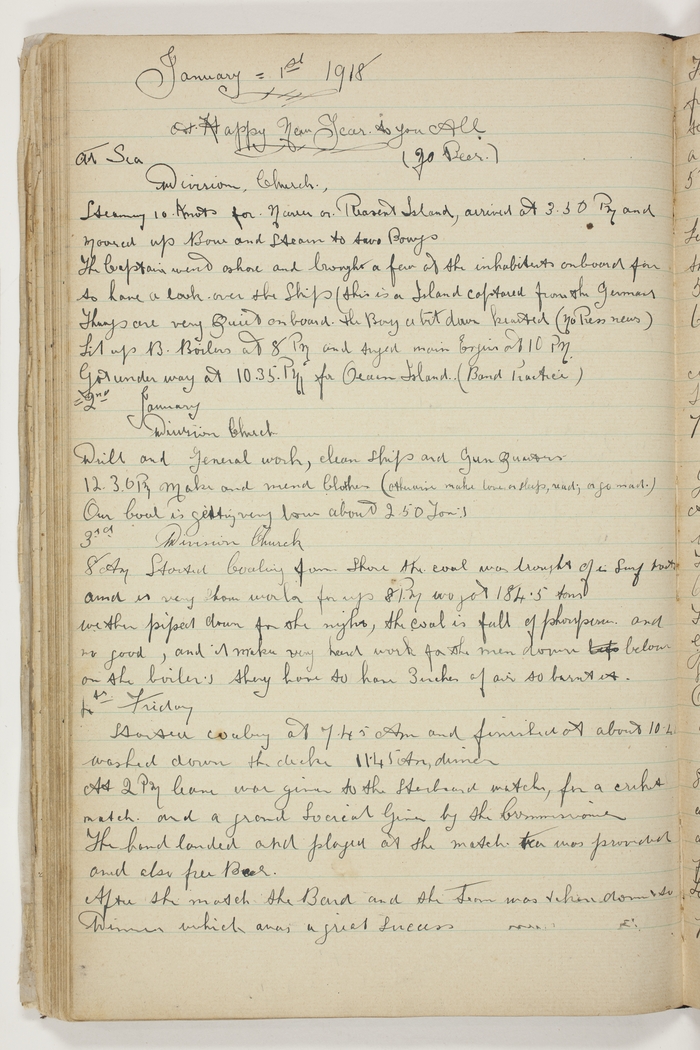 January = 1st 1918
A Happy New Year to you All
At Sea (No Beer.)
Division, Church.,
Steaming 10 Knots for Nauru or Pleasent Island, arrived at 3.30 PM and
moored up Bow and Stern to two Bouys
The Captain went ashore and brought a few of the inhabitents onboard for
to have a look over the Ship (this is a Island captured from the Germans
Things are very Quiet onboard. The Boys a bit down hearted (No Press news)
Lit up B. Boilers at 8 PM and tryed main Engine at 10 PM.
Got under way at 10.35. PM for Ocean Island. (Band Practice)
=2nd January
Division Church
Drill and General work, clean Ships and Gun Quarters
12.30 PM Make and mend Clothes (otherwise make love, or sleep, read, or go mad.)
Our coal is getting very low about 250 Tons
3rd Division Church
8 AM Started Coaling from Shore the coal was brought of in Surf boats
and is very slow work for up 8 PM we got 184.5 tons
we then piped down for the night, the coal is full of phosphorus and
no good, and it make very hard work for the men down below
on the boilers they have to have 3 inches of air to burnt it.
4th Friday
Started coaling at 7.45 AM and finished at about 10.
washed down the decks 11.45 AM, dinner
At 2 PM leave was given to the Starboard watch, for a criket
match. and a grand Socreal Given by the Commissioner
The band landed and played at the match. tea was provided
and also free Beer.
After the match the Band and the Team was taken down to
Dinner which was a great Success